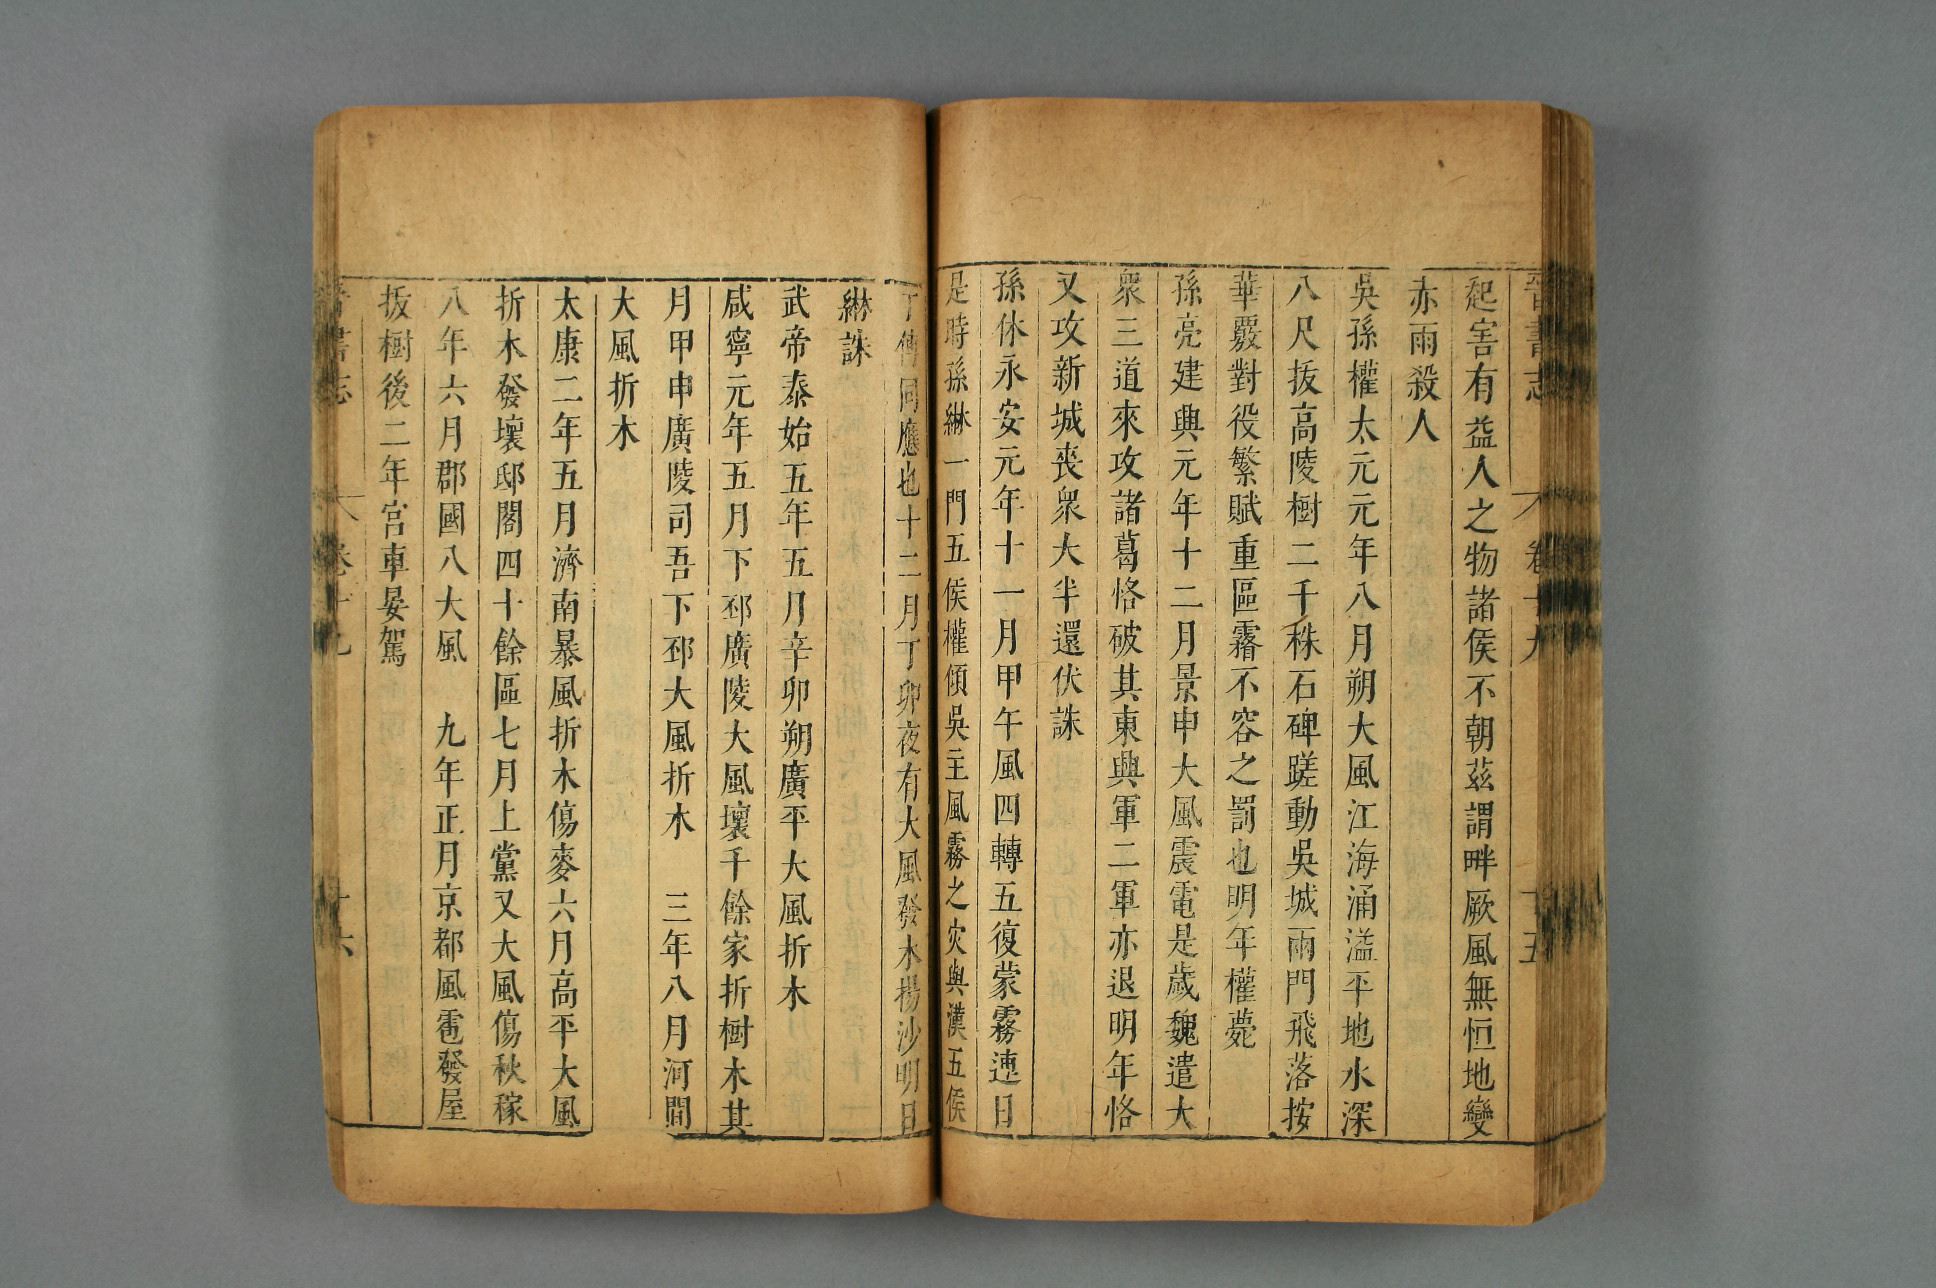 晉書志 卷十九 十五
起害有益人之物諸侯不朝茲謂畔厥風無恒地變
赤雨殺人
吳孫權太元元年八月朔大風江海涌溢平地水深
八尺拔高陵樹二千株石碑蹉動吳城兩門飛落按
華覈對役繁賦重區霿不容之罰也明年權薨
孫亮建興元年十二月景申大風震電是歲魏遣大
衆三道來攻諸葛恪破其東興軍二軍亦退明年恪
又攻新城喪衆大半還伏誅
孫休永安元年十一月甲午風四轉五復蒙霧連日
是時孫綝一門五侯權傾吳主風霧之灾與漢五侯
丁傅同應也十二月丁卯夜有大風發木揚沙明日
綝誅
武帝泰始五年五月辛卯朔廣平大風折木
咸寧元年五月下邳廣陵大風壞千餘家折樹木其
月甲申廣陵司吾下邳大風折木 三年八月河間
大風折木
太康二年五月濟南暴風折木傷麥六月高平大風
折木發壞邸閣四十餘區七月上黨又大風傷秋稼
八年六月郡國八大風 九年正月京都風雹發屋
拔樹後二年宮車晏駕
晉書志 卷十九 十六